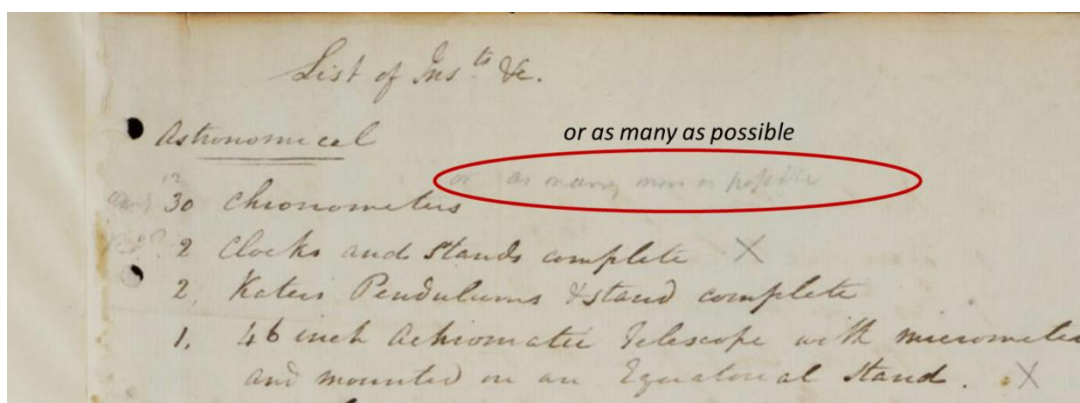 List of Insts &c.
Astronomical
or as many as possible
or as many more as possible
12
30 Chronometers
2 Clocks and Stands complete X
2. Katers Pendulums & stand complete
1. 46 inch Achromatic Telescope with micrometer
and mounted on an Equatorial Stand. X